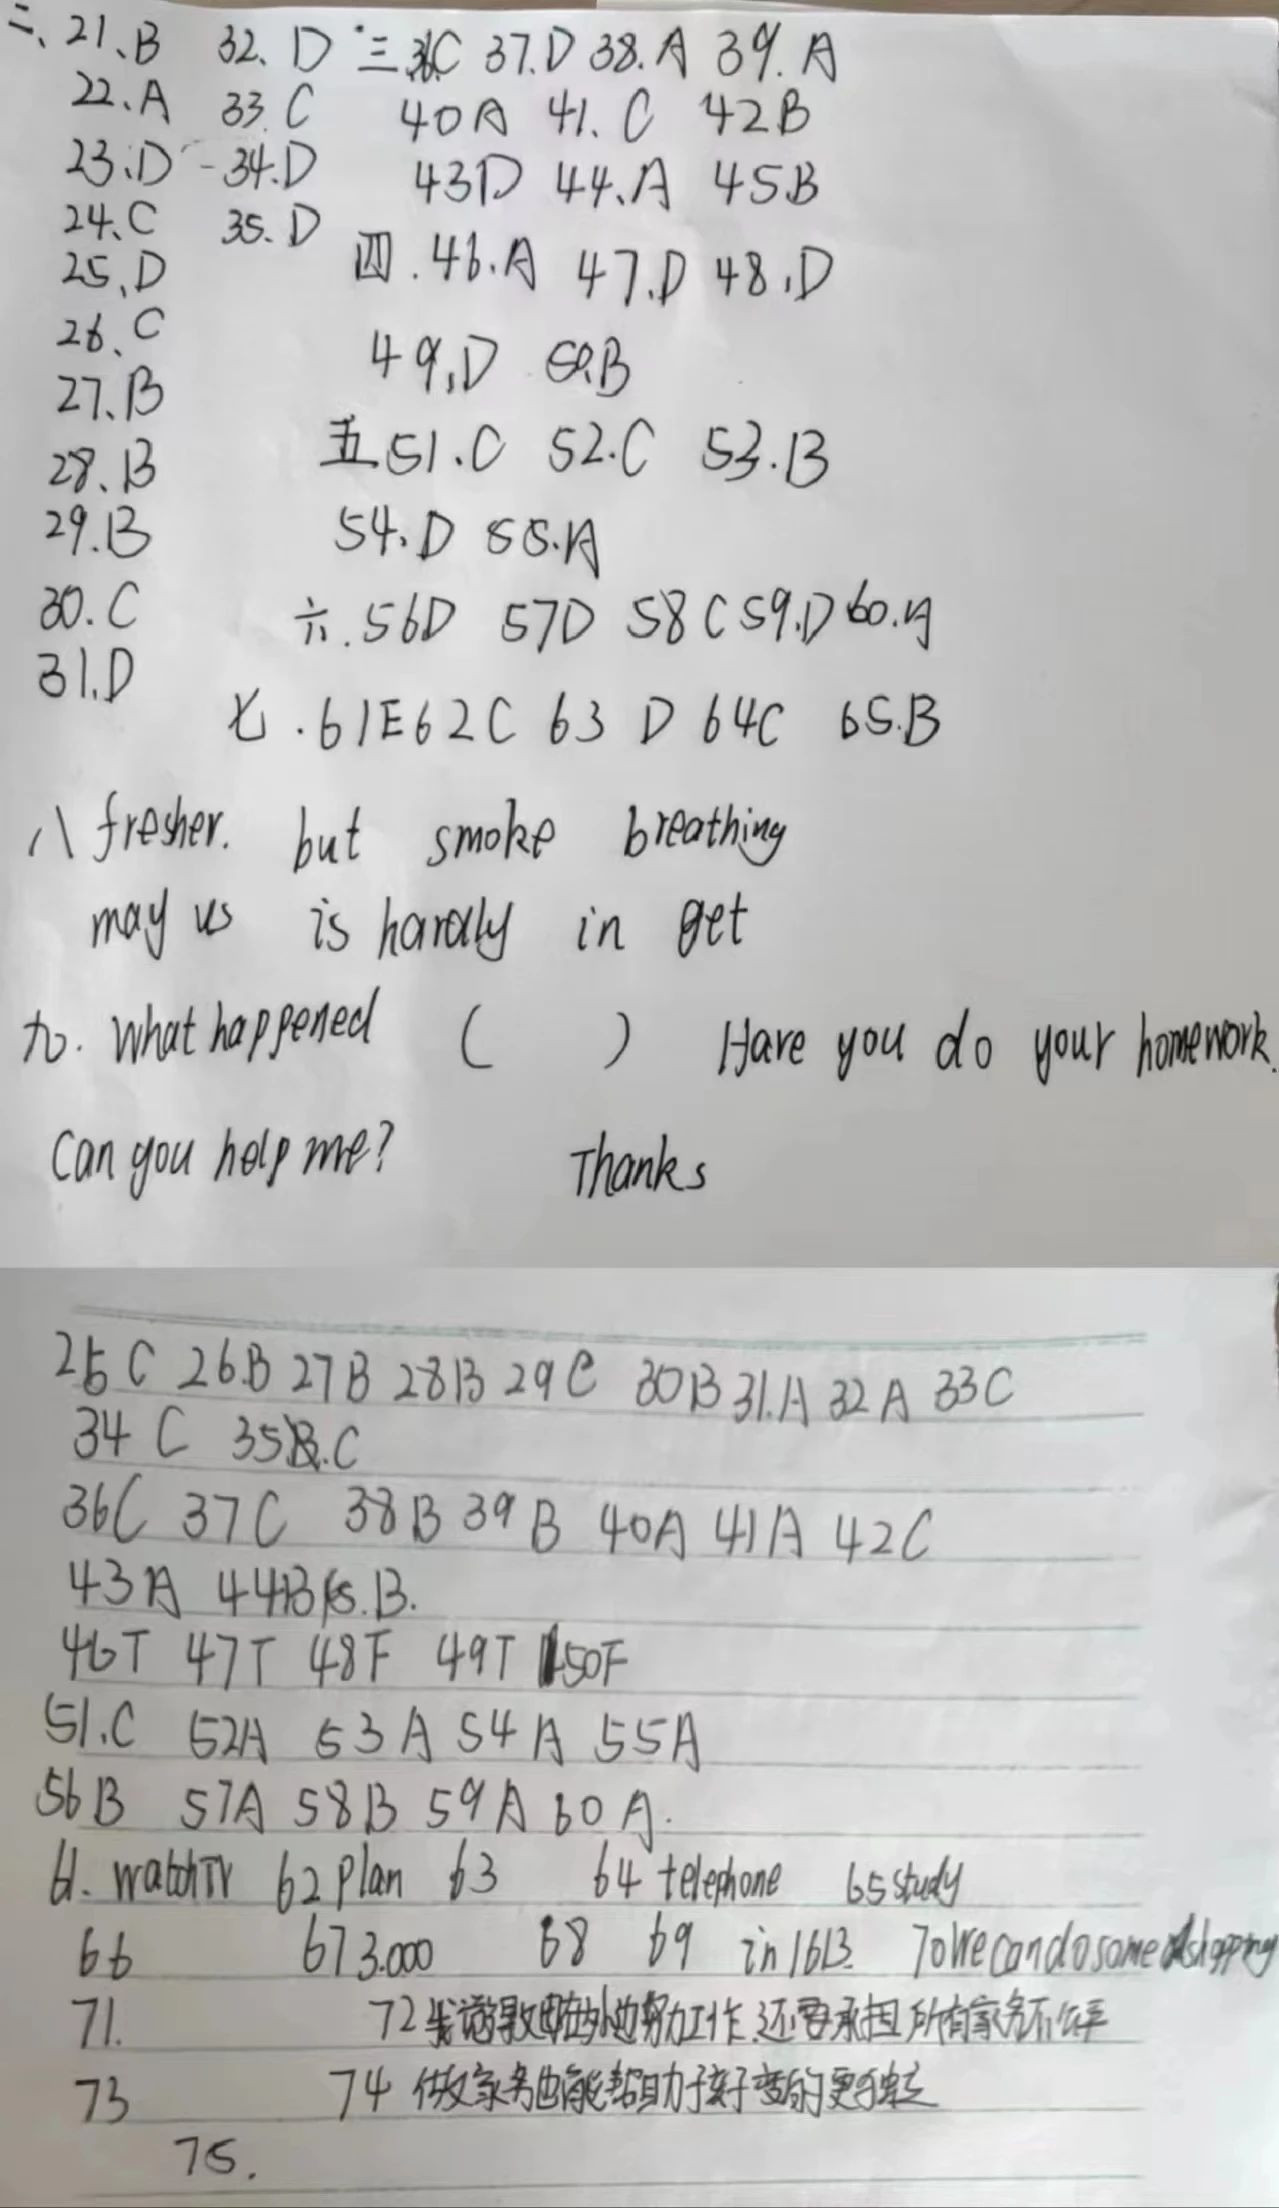 二、21、B 32、D 三36C 37.D 38.A 39.A
22、A 33.C 40A 41、C 42B
23、D 34.D 43D 44、A 45B
24、C 35.D
25、D 四.46.A 47.D 48.D
26、C
49.D 50.B
27、B
五51.C 52.C 53.B
28、B
29.B 54.D 55.A
30.C 六.56D 57D 58C 59.D 60.A
31.D
七.61E 62C 63 D 64C 65.B
八 fresher. but smoke breathing
may us is hardly in get
九. What happened ( ) Have you do your homework.
Can you help me? Thanks
25C 26B 27B 28B 29C 30B 31.A 32A 33C
34 C 35.C
36C 37C 38B 39B 40A 41A 42C
43A 44B 45.B.
46T 47T 48F 49T 50F
51.C 52A 53A 54A 55A
56B 57A 58B 59A 60A.
61. watchTV 62 plan 63 64 telephone 65 study
66 67 3.000 68 69 in 1613. 70 We can do some shopping
71. 72 我觉得父母在外边努力工作.还要承担所有家务不公平
73 74 做家务也能帮助于孩子变的更独立
75.